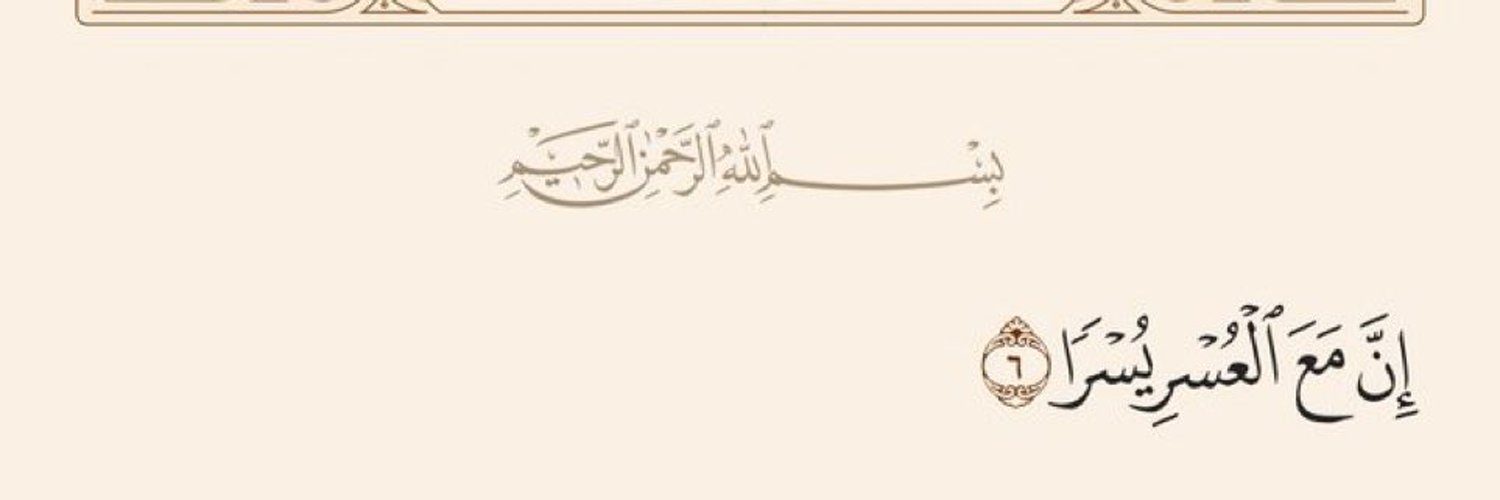 بِسْمِ ٱللَّهِ ٱلرَّحْمَٰنِ ٱلرَّحِيمِ
إِنَّ مَعَ ٱلْعُسْرِ يُسْرًا ٦